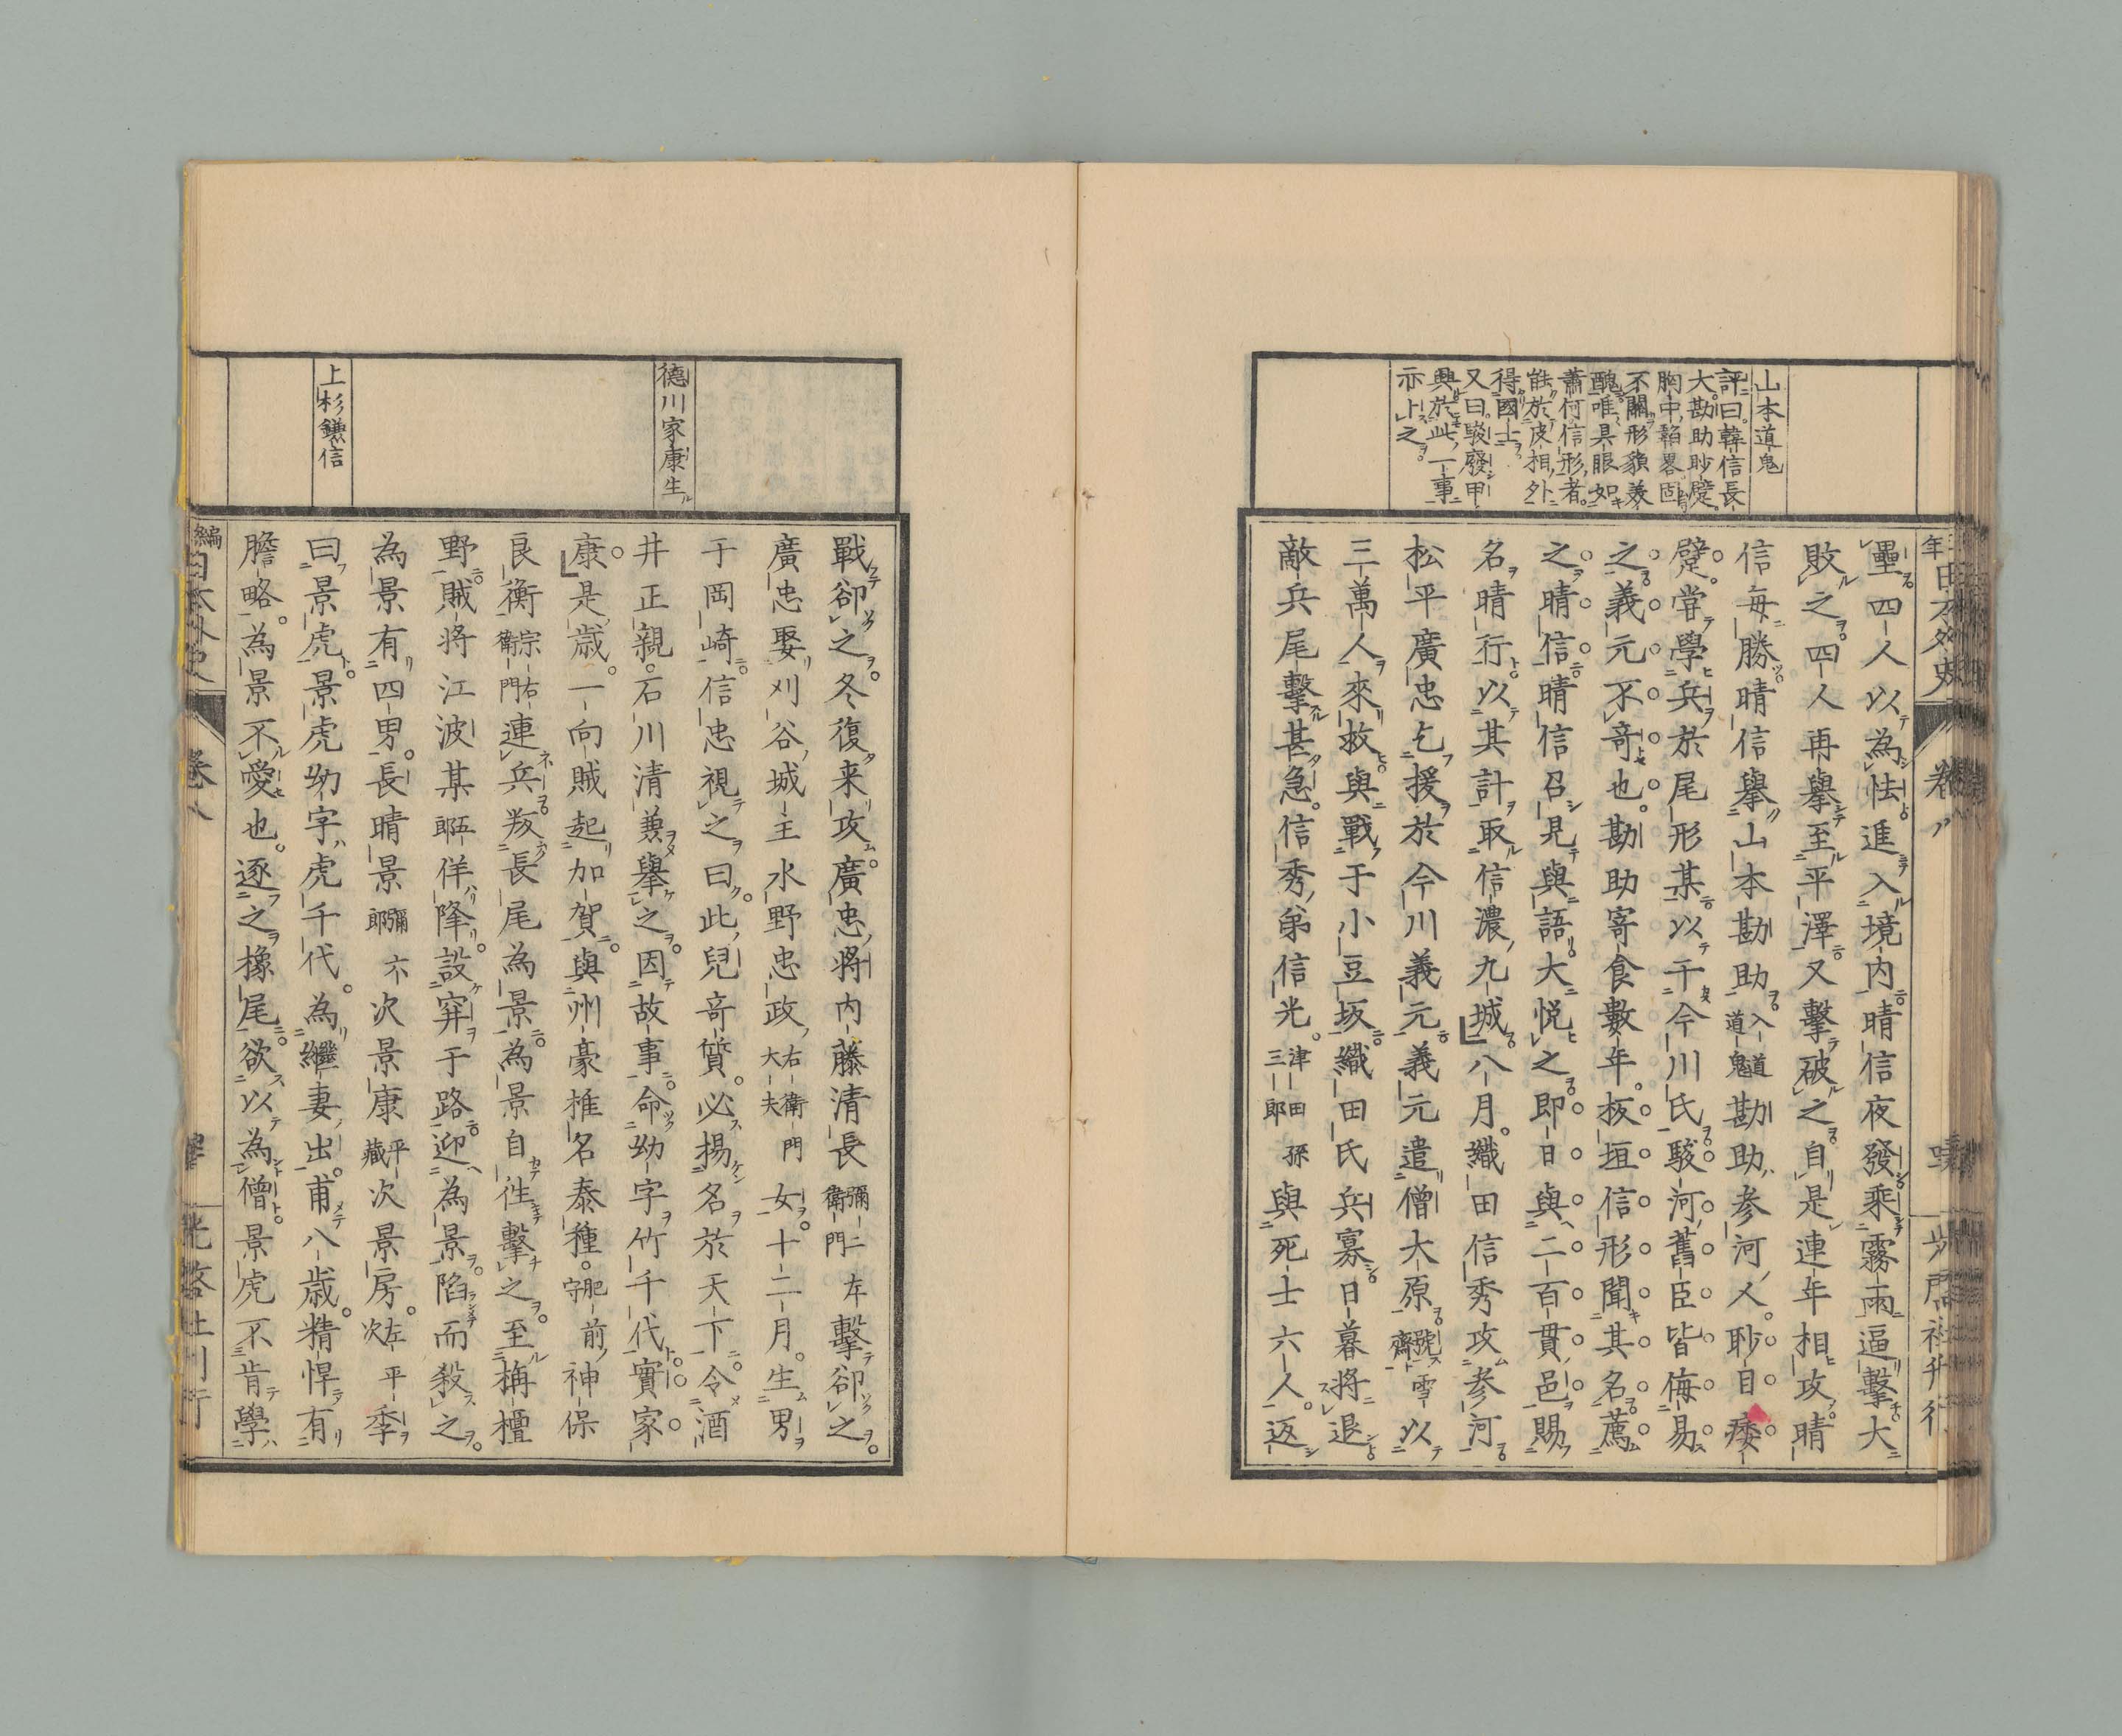 山本道鬼
評曰。韓信長
大。勘助眇躄。
胸中韜畧固
不關形貌義
醜。唯具眼如
蕭何信形者。
能於皮相外
得國士。
又曰。駿廢甲
興。於此一事
亦卜之。
壘。四人以為怯。進入境內。晴信夜發。乘霧雨逼擊大
敗之。四人再擧至平澤。又擊破之。自是連年相攻。晴
信每勝。晴信擧山本勘助。入道道鬼勘助參河人。眇目痿
躄。嘗學兵於尾形某。以干今川氏。駿河舊臣皆侮易
之。義元不奇也。勘助寄食數年。板垣信形聞其名。薦
之晴信。晴信召見與語。大悅之。即日與二百貫邑。賜
名晴行。以其計取信濃九城。八月。織田信秀攻參河。
松平廣忠乞援於今川義元。義元遣僧大原號雪齋以
三萬人來救。與戰于小豆坂。織田氏兵寡。日暮將退。
敵兵尾擊甚急。信秀弟信光。津田孫三郎與死士六人。返
德川家康生
上杉鎌信
戰卻之。冬復来攻。廣忠將內藤清長彌二左衛門擊卻之。
廣忠娶刈谷城主水野忠政右衛門大夫女。十二月。生男
于岡崎。信忠視之曰。此兒奇質。必揚名於天下。令酒
井正親。石川清兼擧之。因故事。命幼字竹千代。實家
康。是歲。一向賊起加賀。與州豪椎名泰種。肥前守神保
良衡宗右衛門連兵叛長尾為景。為景自往擊之。至栴檀
野。賊将江波某五郎佯降。設穽于路。迎為景。陷而殺之。
為景有四男。長晴景彌六郎次景康平藏次景房。左平次季
曰景虎。景虎幼字虎千代。為繼妻出。甫八歲。精悍有
膽略。為景不愛也。逐之橡尾。欲以為僧。景虎不肯學